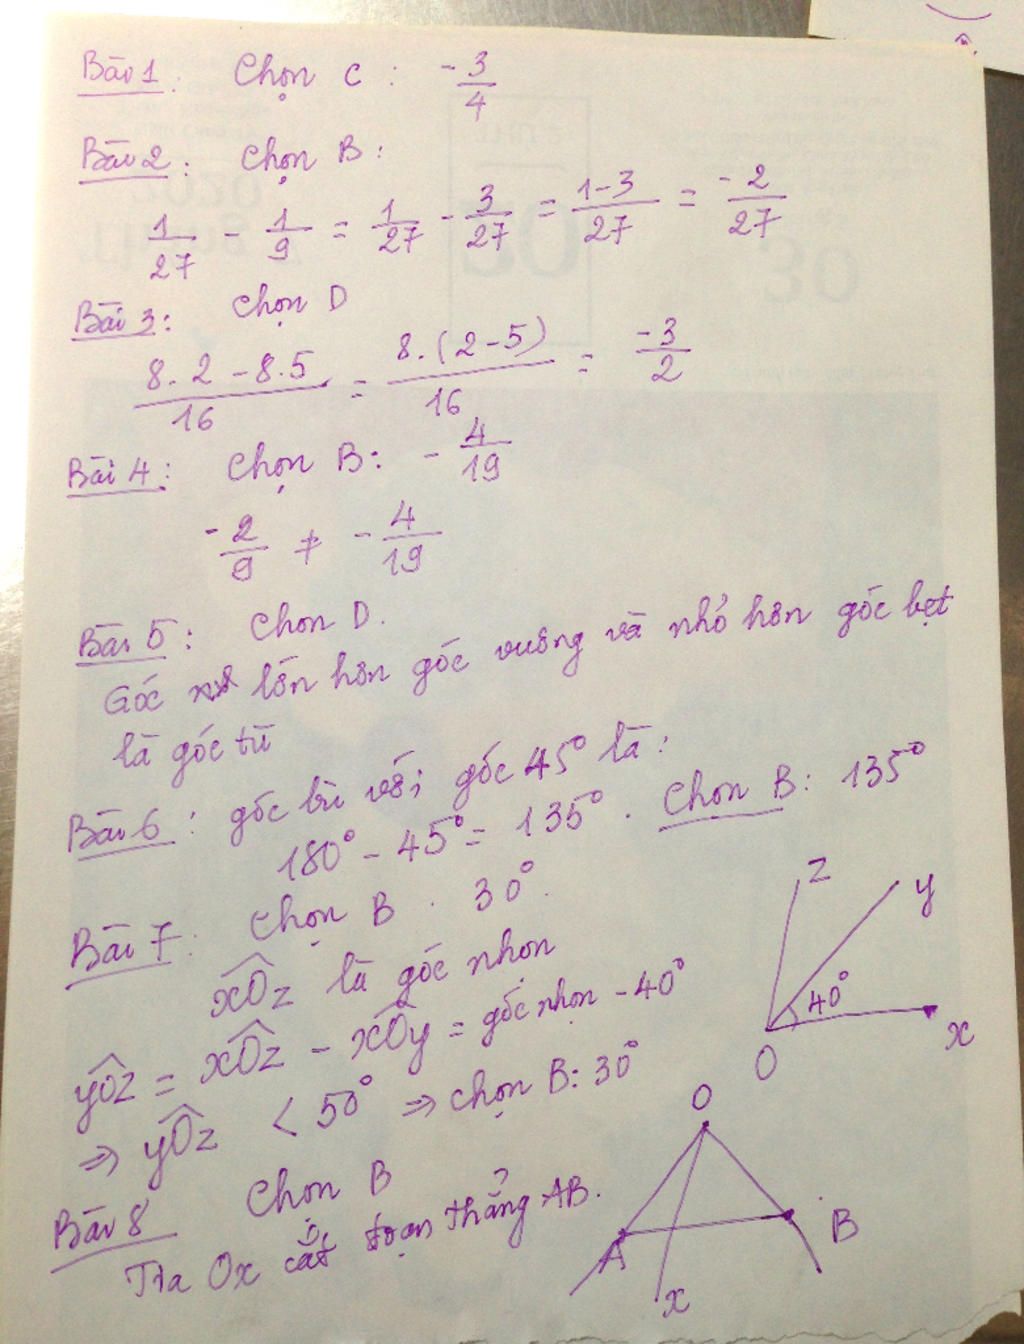 Bài 1: Chọn C: -3/4
Bài 2: Chọn B:
1/27 - 1/9 = 1/27 - 3/27 = 1-3/27 = -2/27
Bài 3: Chọn D
8.2 - 8.5/16 = 8.(2-5)/16 = -3/2
Bài 4: Chọn B: -4/19
-2/9 ≠ -4/19
Bài 5: Chọn D.
Góc lớn hơn góc vuông và nhỏ hơn góc bẹt
là góc tù
Bài 6: góc bù với góc 45° là:
180° - 45° = 135°. Chọn B: 135°
Bài 7: Chọn B. 30°.
xOz là góc nhọn
yOz = xOz - xOy = góc nhọn - 40°
⇒ yOz < 50° ⇒ chọn B: 30°
z
y
40°
x
O
Bài 8 Chọn B
Tia Ox cắt đoạn thẳng AB.
O
A
B
x